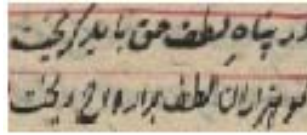 در پناه لطف حق باید گریخت
کو هزاران لطف بر ارواح ریخت